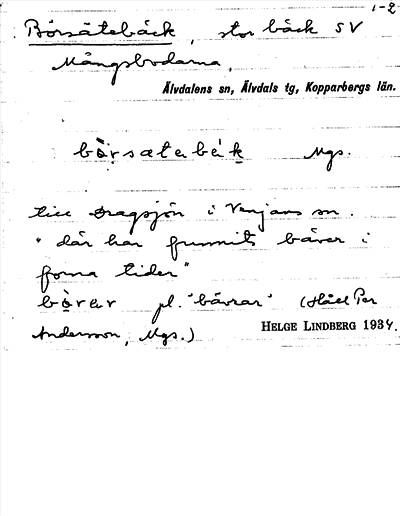 1-2
Börsätebäck, stor bäck SV
Mångsbodarna,
Älvdalens sn, Älvdals tg, Kopparbergs län.
bö̀rsætebẹk Mgs.
till Dragsjön i Venjans sn.
"där har funnits bäver i
forna tider"
bö̀rar pl. "bävrar" (
Per
Andersson, Mgs.) HELGE LINDBERG 1934.